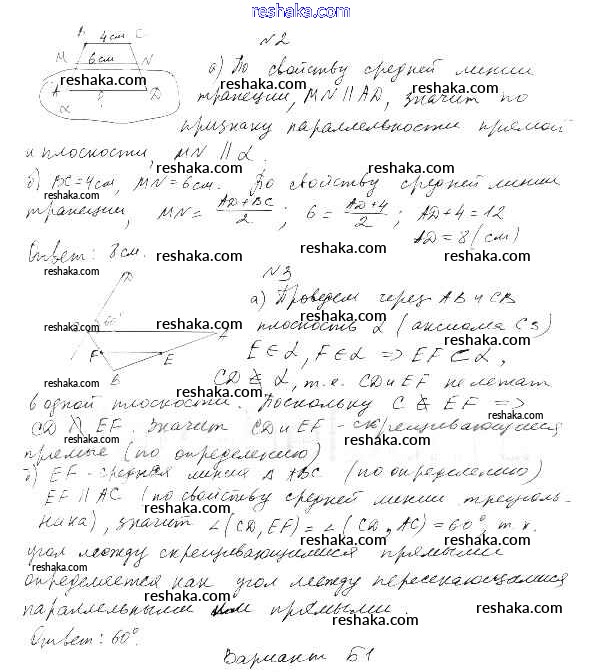 reshaka.com
В 4см С
№2
M 6см N
reshaka.com
A D
α
а) По свойству средней линии
трапеции, MN || AD, значит по
признаку параллельности прямой
и плоскости, MN || α.
б) BC=4см, MN=6см. По свойству средней линии
трапеции, MN = (AD+BC)/2 ; 6 = (AD+4)/2 ; AD+4=12
AD=8(см)
Ответ: 8см.
reshaka.com
№3
D
60°
A
F E
B
а) Проведем через AB и CB
плоскость α (аксиома C3)
E∈α, F∈α => EF⊂α,
CD ⊄ α, т.е. CD и EF не лежат
в одной плоскости. Поскольку C ∉ EF =>
CD ∦ EF. Значит CD и EF - скрещивающиеся
прямые (по определению)
б) EF - средняя линия Δ ABC (по определению)
EF || AC (по свойству средней линии треуголь-
ника), значит ∠(CD,EF)=∠(CD,AC)=60°, т.к.
угол между скрещивающимися прямыми
определяется как угол между пересекающимися
параллельными им прямыми.
Ответ: 60°.
reshaka.com
Вариант Б1